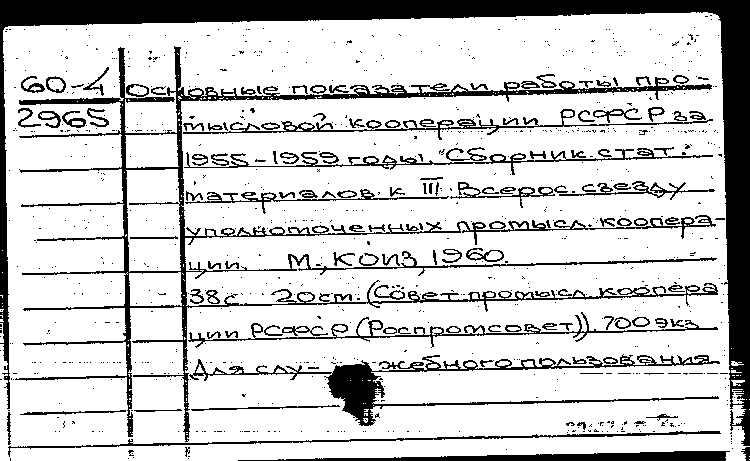 60-4 Основные показатели работы про-
2965 мысловой кооперации РСФСР за
1955-1959 годы. Сборник стат.
материалов к III Всерос. съезду
уполномоченных промысл. коопера-
ции. М., КОИЗ, 1960.
38с. 20см. (Совет промысл. коопера
ции РСФСР (Роспромсовет)). 700 экз
Для слу-жебного пользования